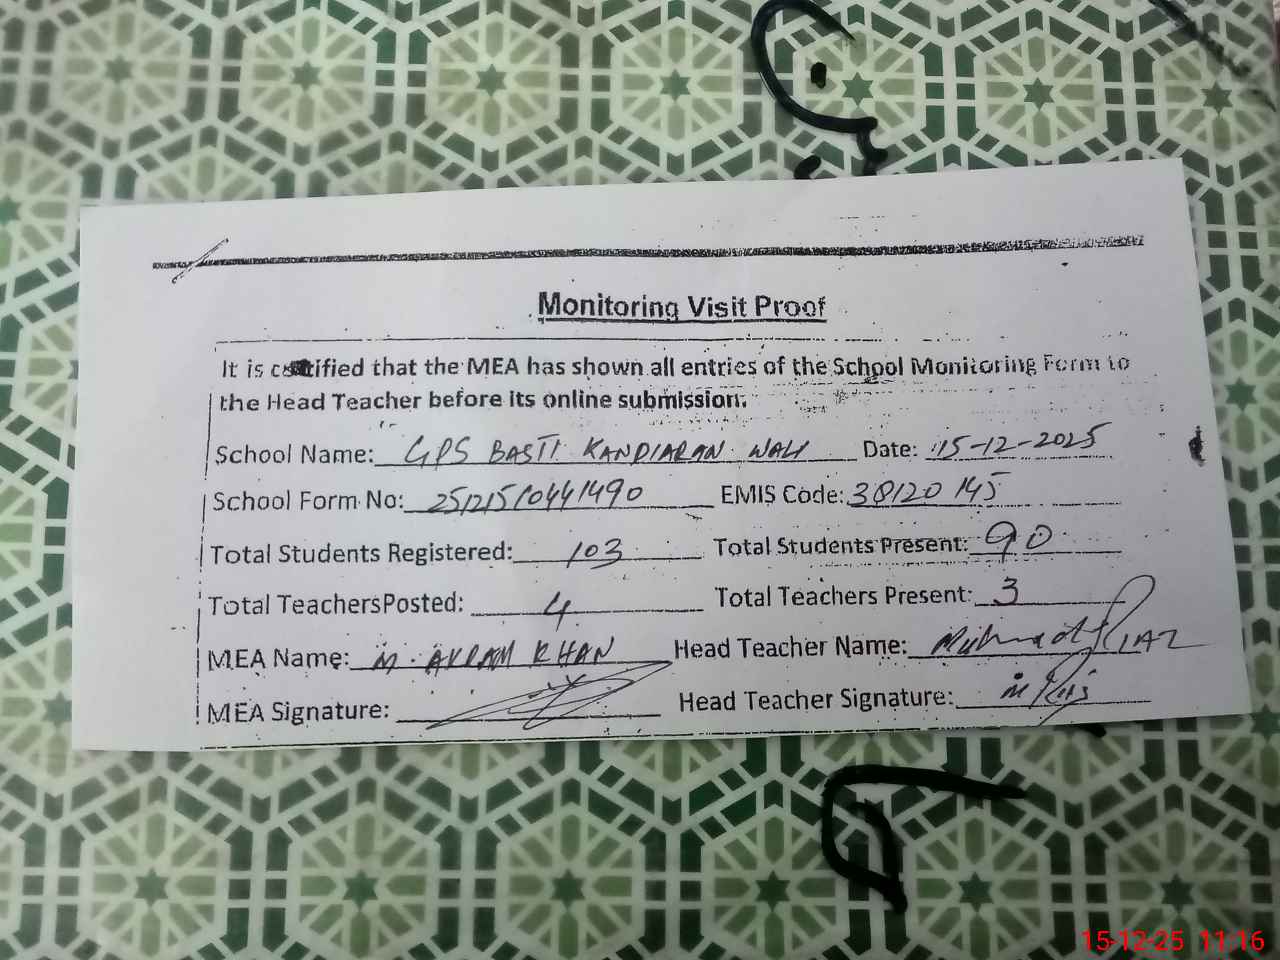 Monitoring Visit Proof
It is certified that the MEA has shown all entries of the School Monitoring Form to
the Head Teacher before its online submission.
School Name: GPS BASTI KANDIARAN WALI Date: 15-12-2025
School Form No: 25121510441490 EMIS Code: 38120145
Total Students Registered: 103 Total Students Present: 90
Total TeachersPosted: 4 Total Teachers Present: 3
MEA Name: M. AKRAM KHAN Head Teacher Name: Muhmad RIAZ
MEA Signature: Head Teacher Signature: M Riaz
15-12-25 11:16